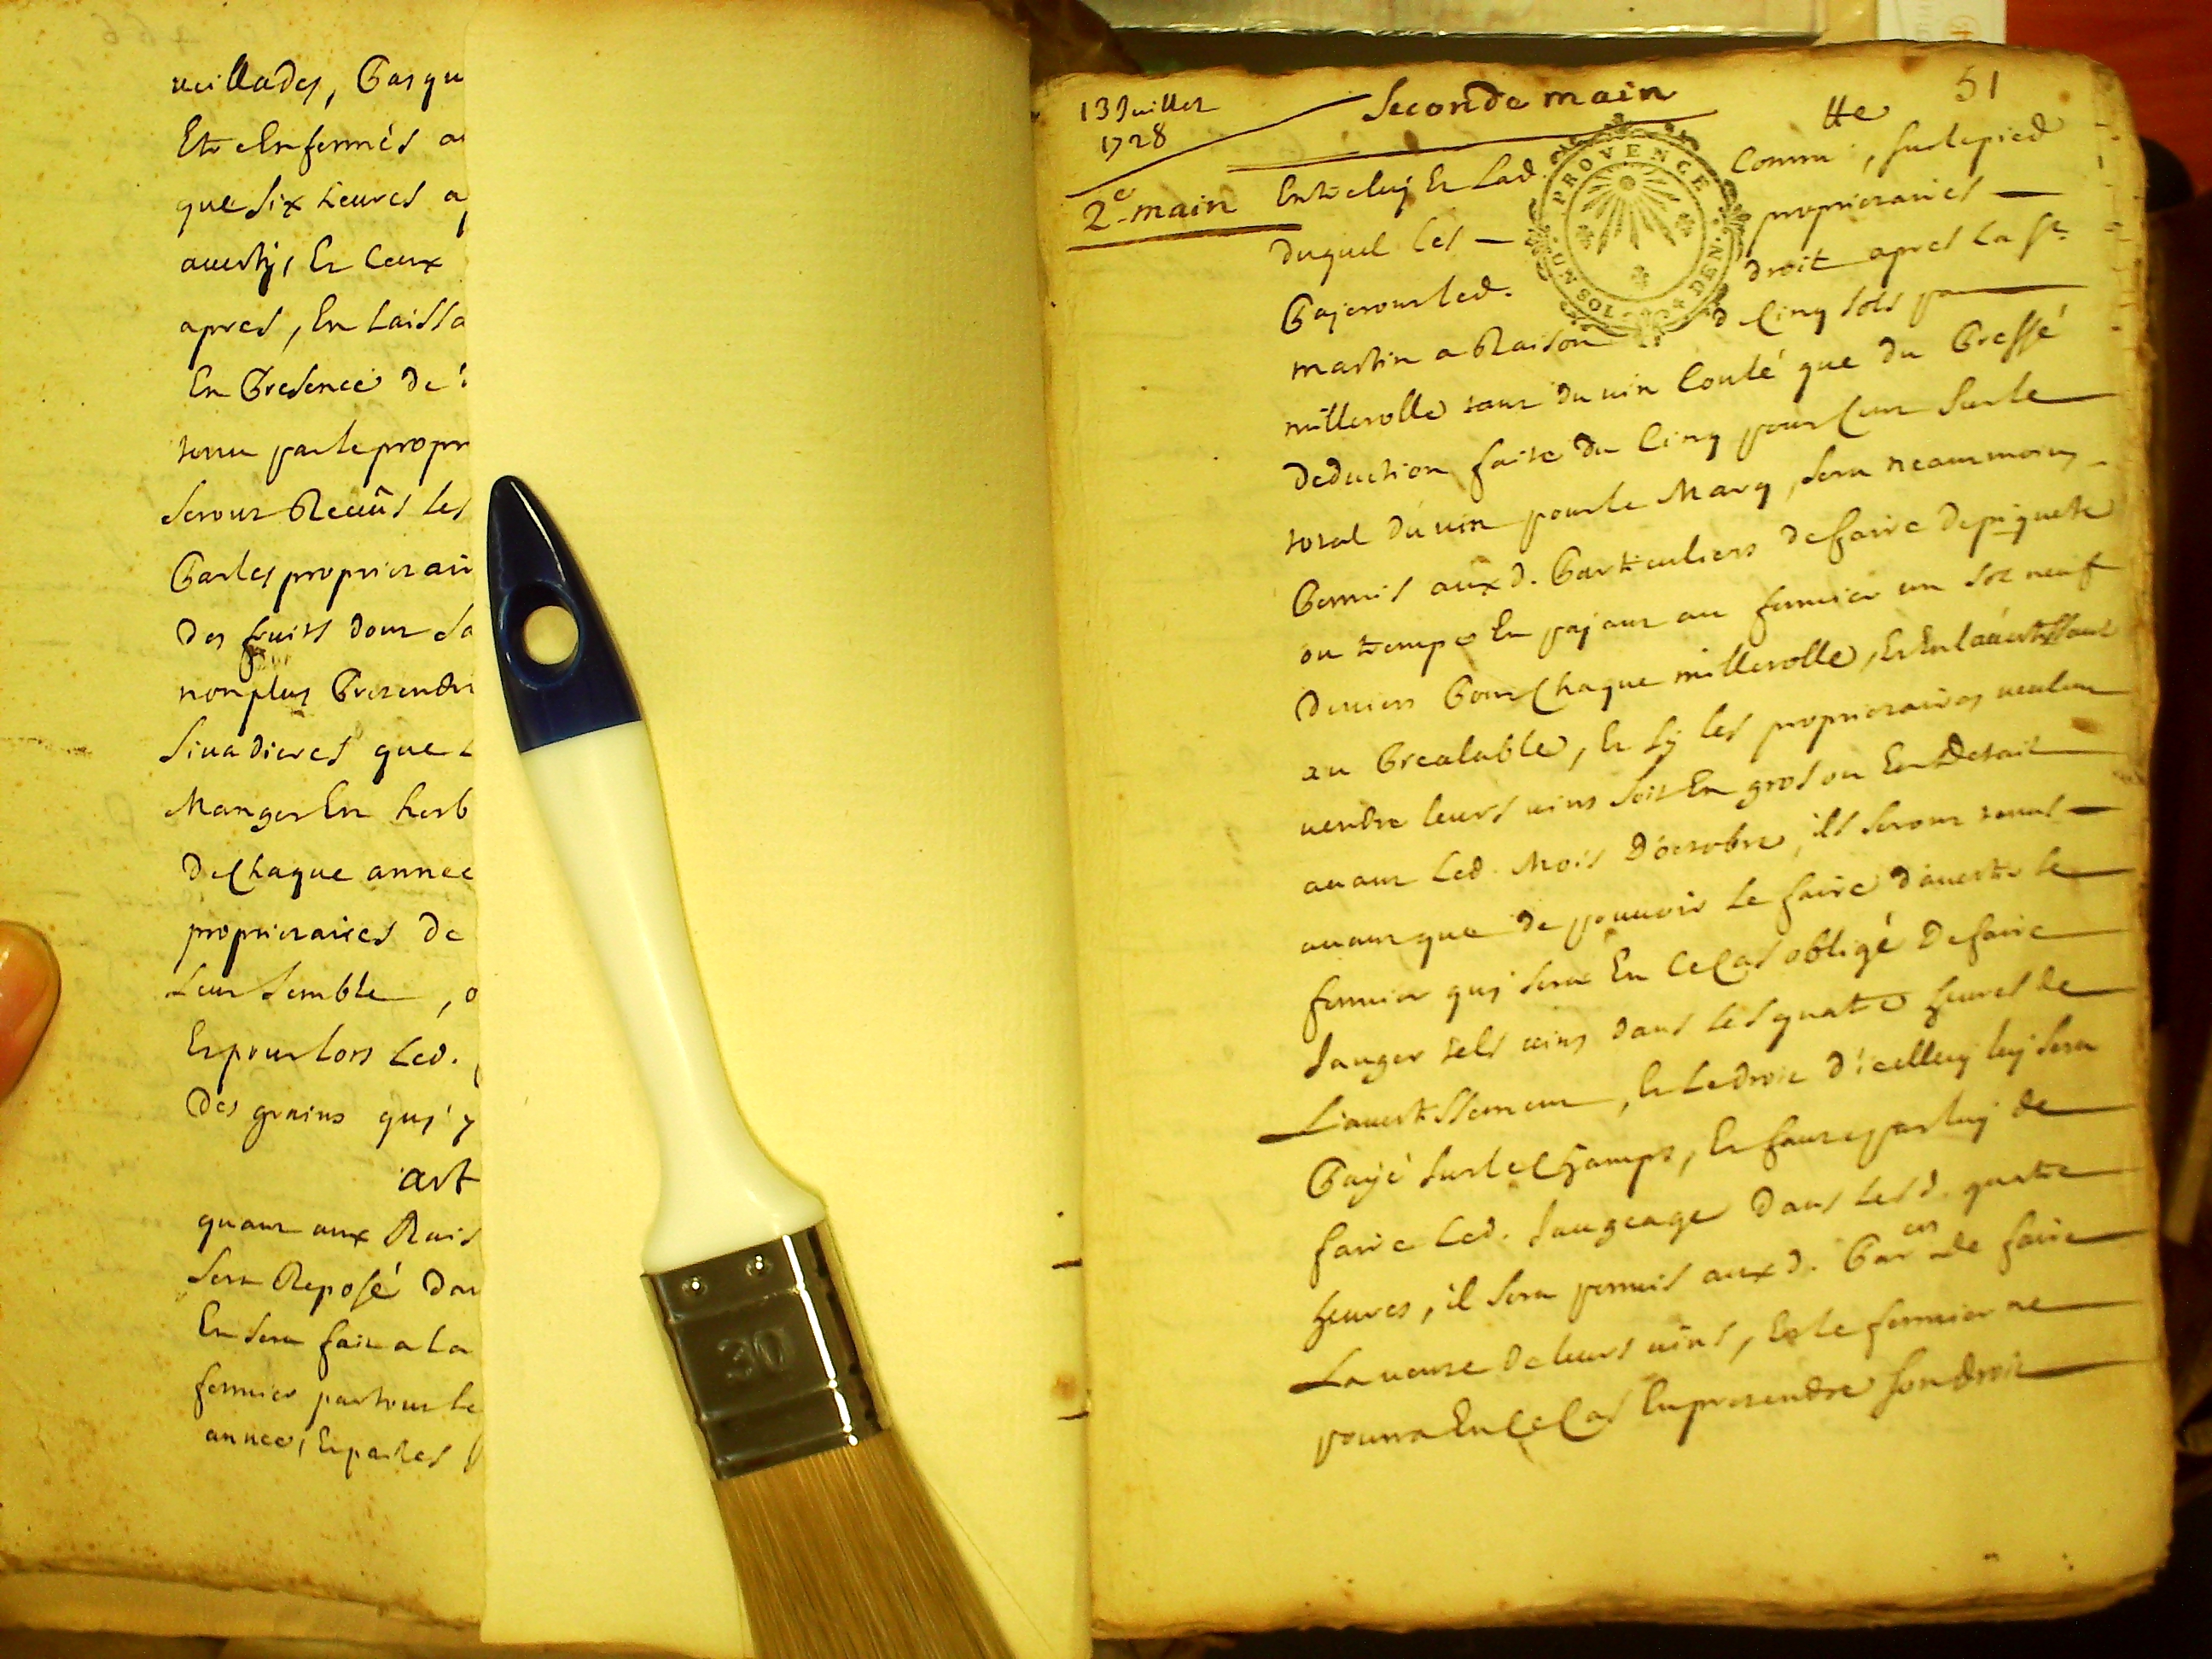 veillades, Pasqu
Etre Enfermés a
que Six heures a
averty, Et Ceux
apres, En Laissa
En Presence de
tenu par le propr
Seront Receûs les
Par les proprietair
Des fruits dont Sa
non plus Pretendr
Sivadieres que
Manger En herb
De Chaque annee
proprietaires de
Leur Semble, o
Et pour lors Led.
Des grains quj y
art
quant aux Rais
Sera Reposé Dan
En Sera fait a La
fermier par tout Le
annee, Et par les
13 Juillet
1728
Seconde main
51
2e main
PROVENCE
UN SOL
DEN.
Entre luj Et Lad. Commtte, Sur le pied
Duquel Les — proprietaires —
Pajeront Led. droit apres La St.
martin a Raison d Cinq Sols pa
millerolle tant Du vin Coulé que du Pressé
Deduction faite du Cinq pour Cent Sur le
total du vin pour le Marq, Sera neanmoins
Permis aux d. Particuliers de faire De piquete
ou trempe En pajant au fermier un Sol neuf
Deniers Pour Chaque millerolle, Et En l'avertissant
au Prealable, Et Sj les proprietaires veulent
vendre leurs vins Soit En gros ou En Detail
avant Led. Mois D'octobre, ils Seront tenus —
avant que de pouvoir Le faire d'avertir le
fermier quj Sera En Ce Cas obligé De faire
Jauger tels vins dans Les quatre heures de
L'avertissement, Et Le droit d'icelluy luj Sera
Payé Sur le Champs, Et faute par luj de
faire Led. Jaugeage Dans Les d. quatre
heures, il Sera permis aux d. Par ers de faire
La vente de leurs vins, Et le fermier ne
pourra En Ce Cas En pretendre Son droit
30